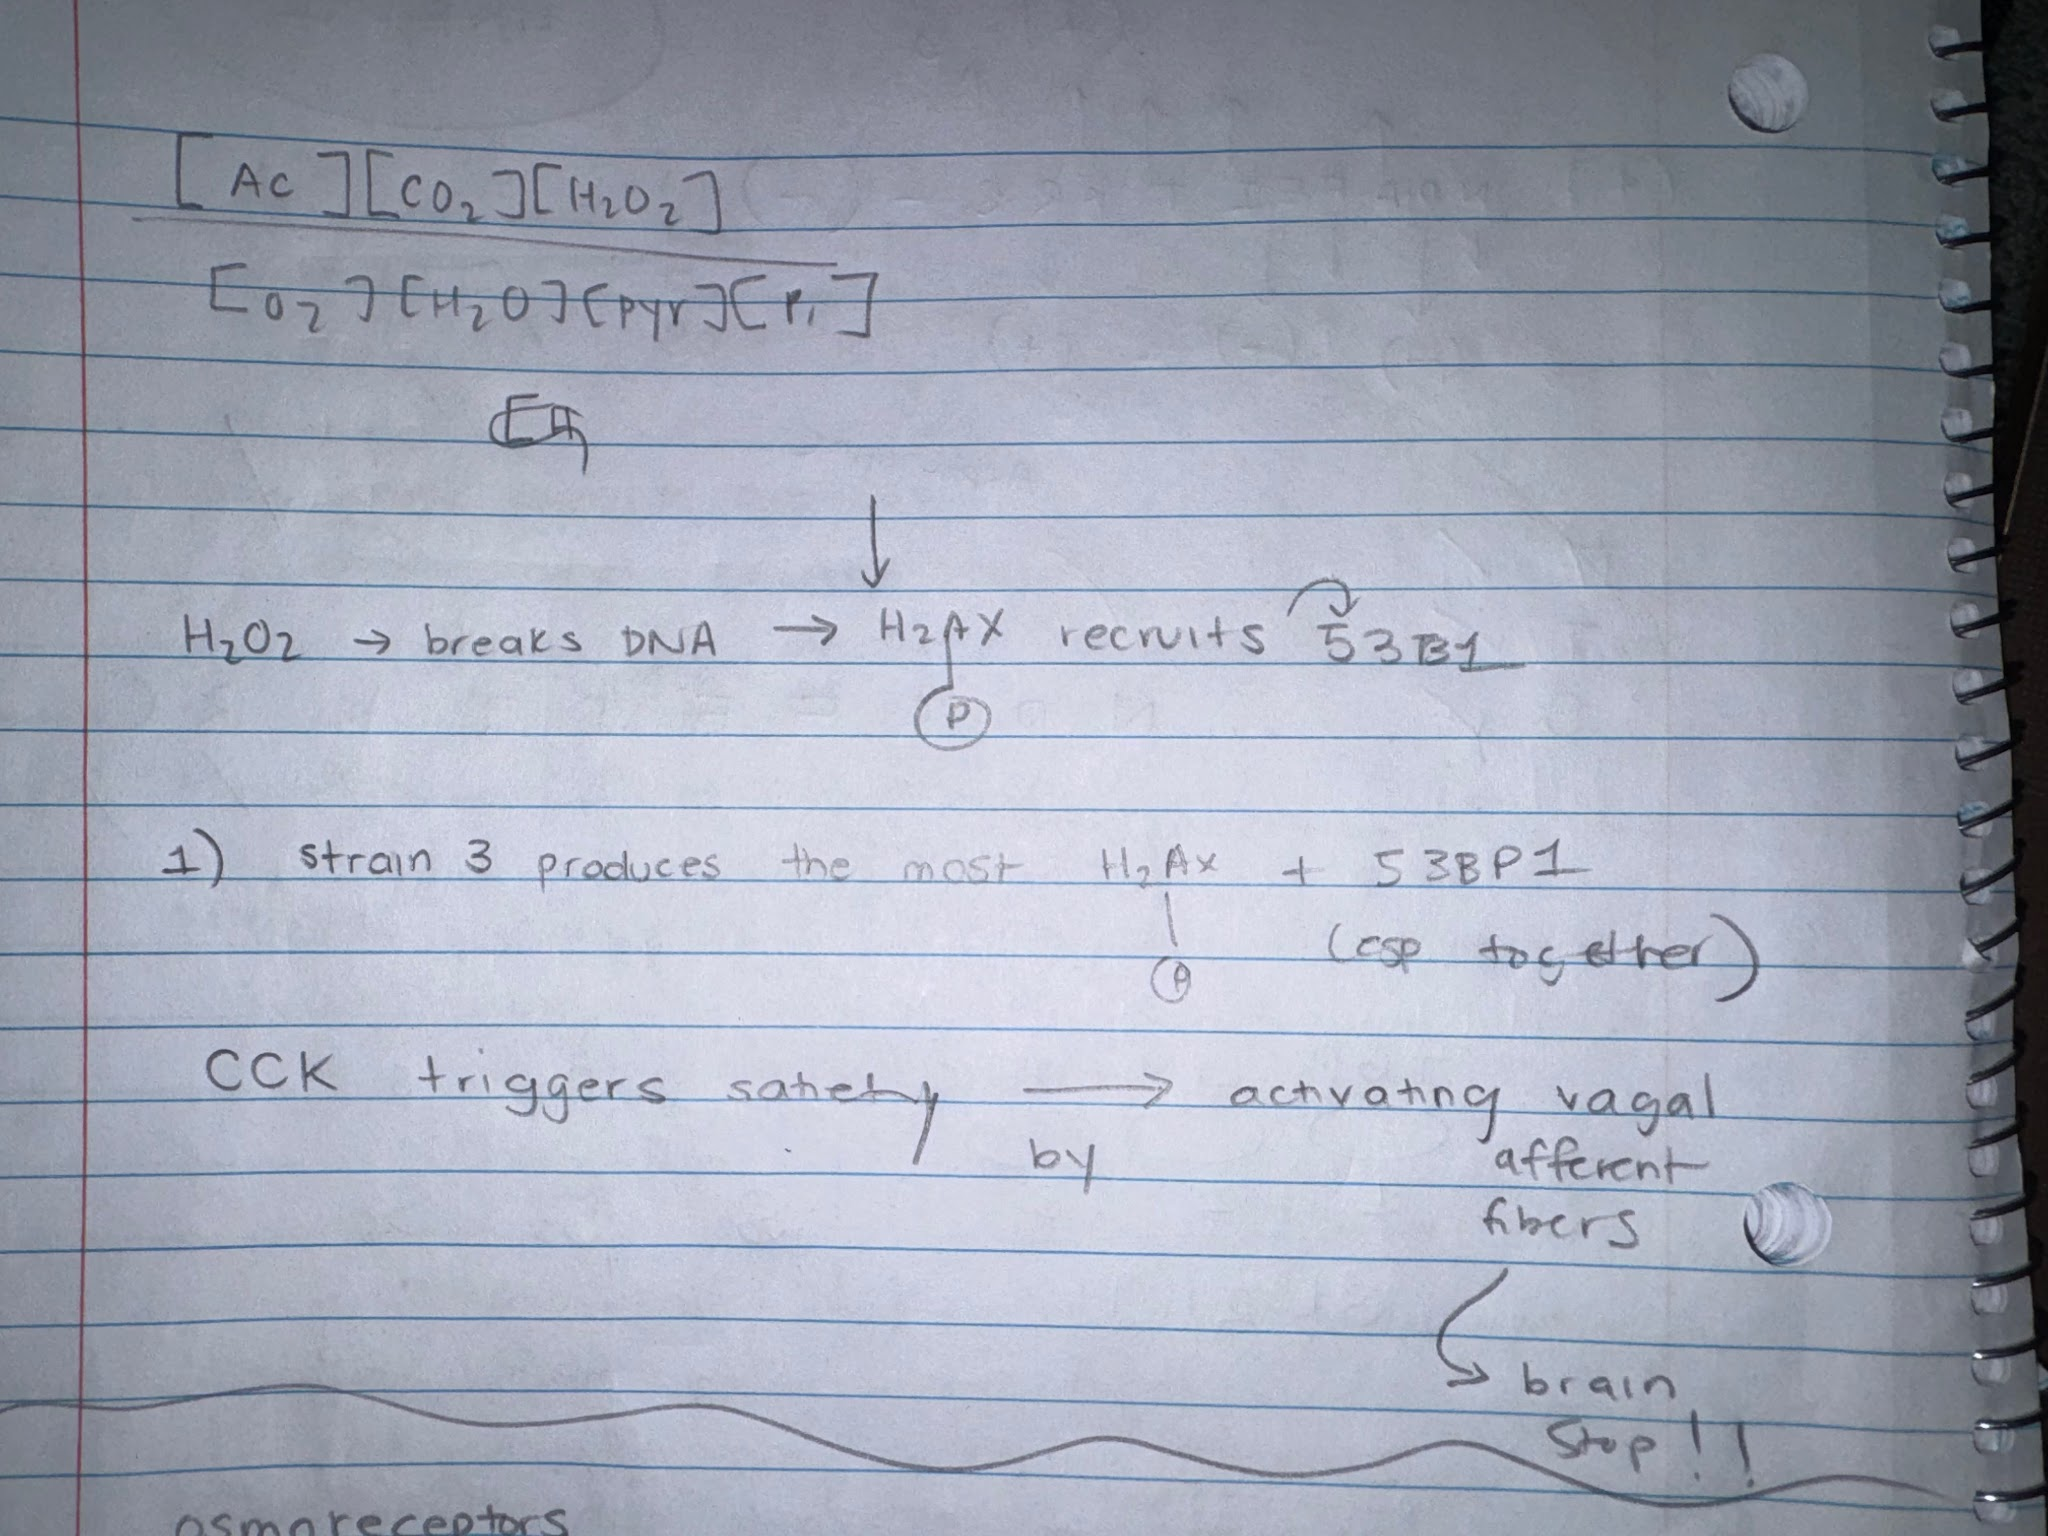 [Ac][CO₂][H₂O₂]
[O₂][H₂O][Pyr][Pi]
Eq
↓
H₂O₂ → breaks DNA → H2AX recruits 53B1
P
1) strain 3 produces the most H₂Ax + 53BP1
P (esp together)
CCK triggers satiety → activating vagal
by afferent
fibers
brain
stop!!
osmoreceptors